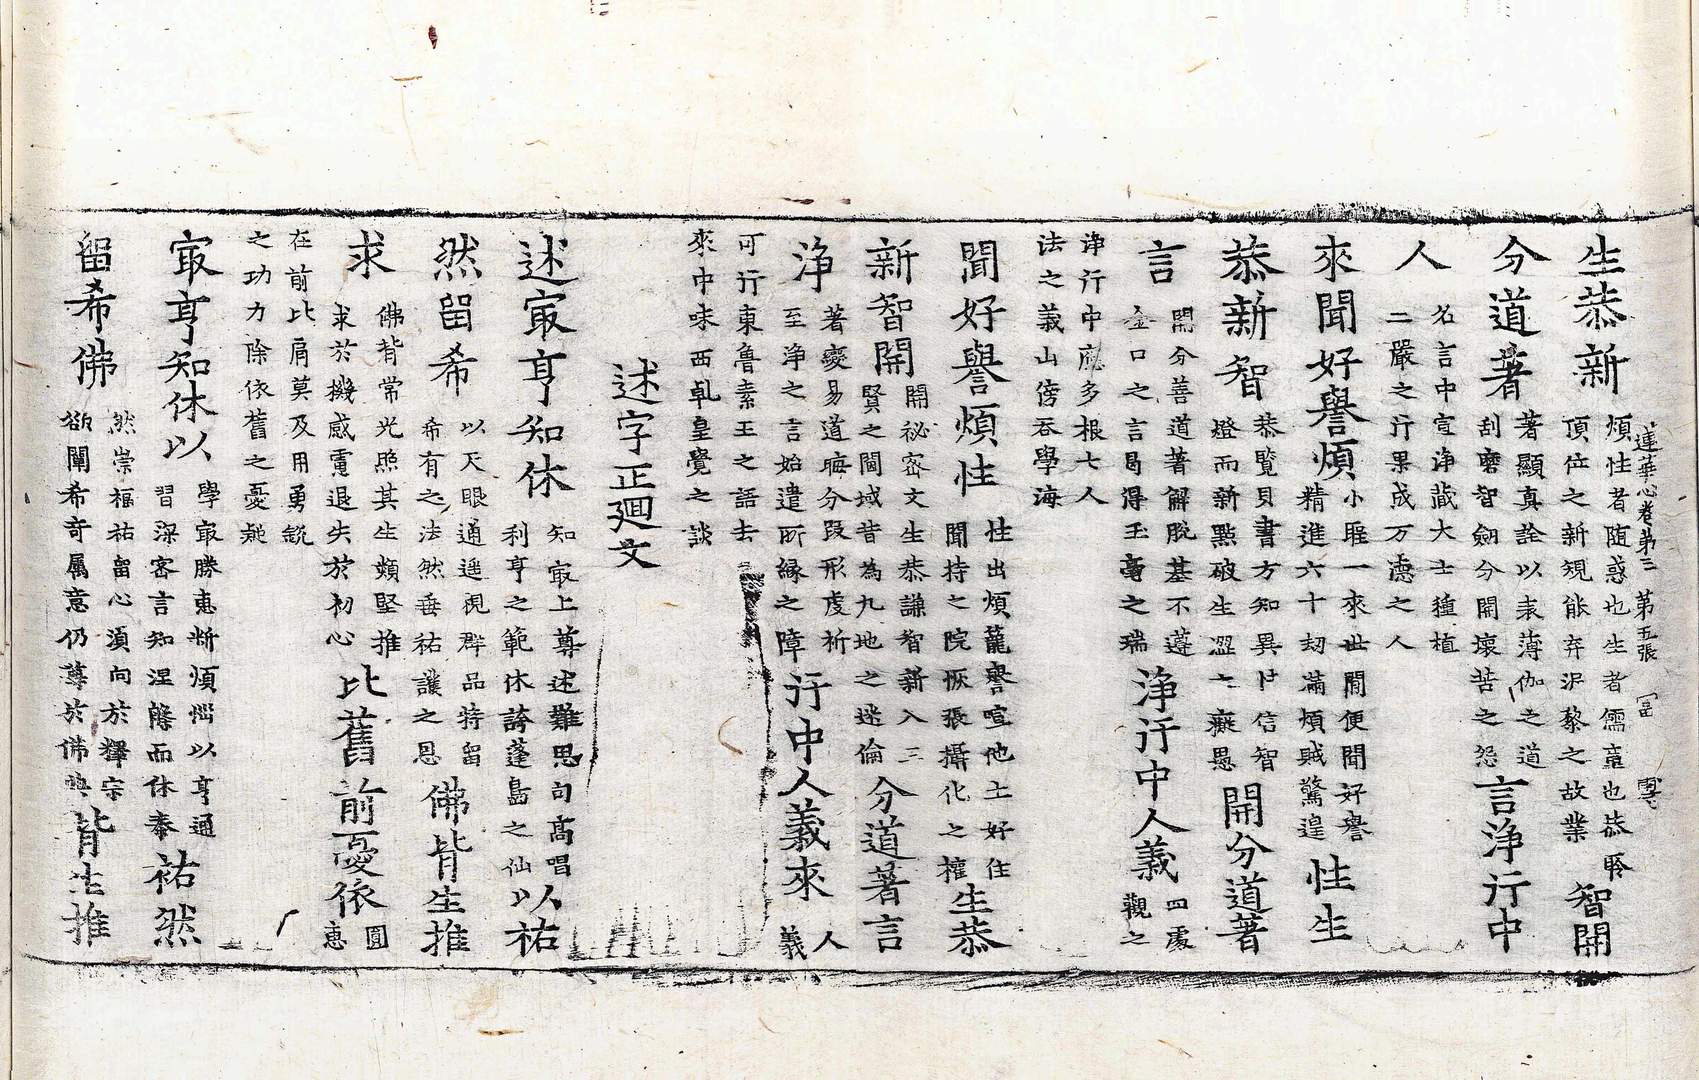 蓮華心卷第三 第五張
生恭新煩性者随惑也生者儒童也恭聆頂位之新規能弃泥黎之故業智開
分道著著顯真詮以表薄伽之道刮磨智劒分開壞苦之怨言淨行中
人名言中宣淨藏大士種植二嚴之行果成万德之人
來聞好譽煩小雖一來世間便聞好譽精進六十劫滿煩賊驚遑性生
恭新智恭覽貝書方知異甘信智燈而新點破生盈七癡愚開分道著
言開分善道著解脫基不遵金口之言曷得玉毫之瑞淨行中人義四處觀之
淨行中應多根七人
法之義山傍吞學海
聞好譽煩性性出煩籠譽喧他土好住聞持之院恢張攝化之權生恭
新智開開祕密文生恭謙智新入三賢之閫域昔為九地之迷倫分道著言
淨著變易道晦分段形虔祈至淨之言始遣所緣之障行中人義來人義
可行東魯素王之語去
來中味西乹皇覺之談
述字正廻文
述㝡亨知休知㝡上尊述難思句高唱利亨之範休誇蓬島之仙以祐
然留希以天眼通遥視群品特留希有之法然垂祐護之恩佛背生推
求佛背常光照其生類堅推求於機感電退失於初心比舊前憂依圓惠
在前比肩莫及用勇銳
之功力除依舊之憂疑
㝡亨知休以學㝡勝惠断煩惱以亨通習深密言知涅槃而休泰祐然
留希佛然崇福祐留心須向於釋宗欲闡希奇属意仍蓴於佛典背生推